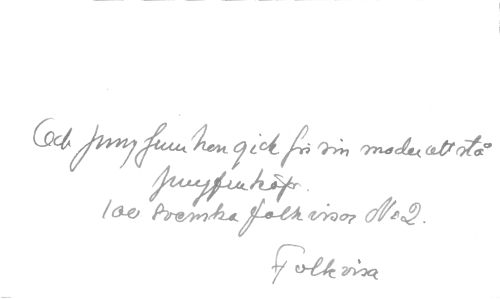 Och jungfrun hon gick för sin moder att stå
Jungfruköp.
100 svenska folkvisor No 2.
Folkvisa